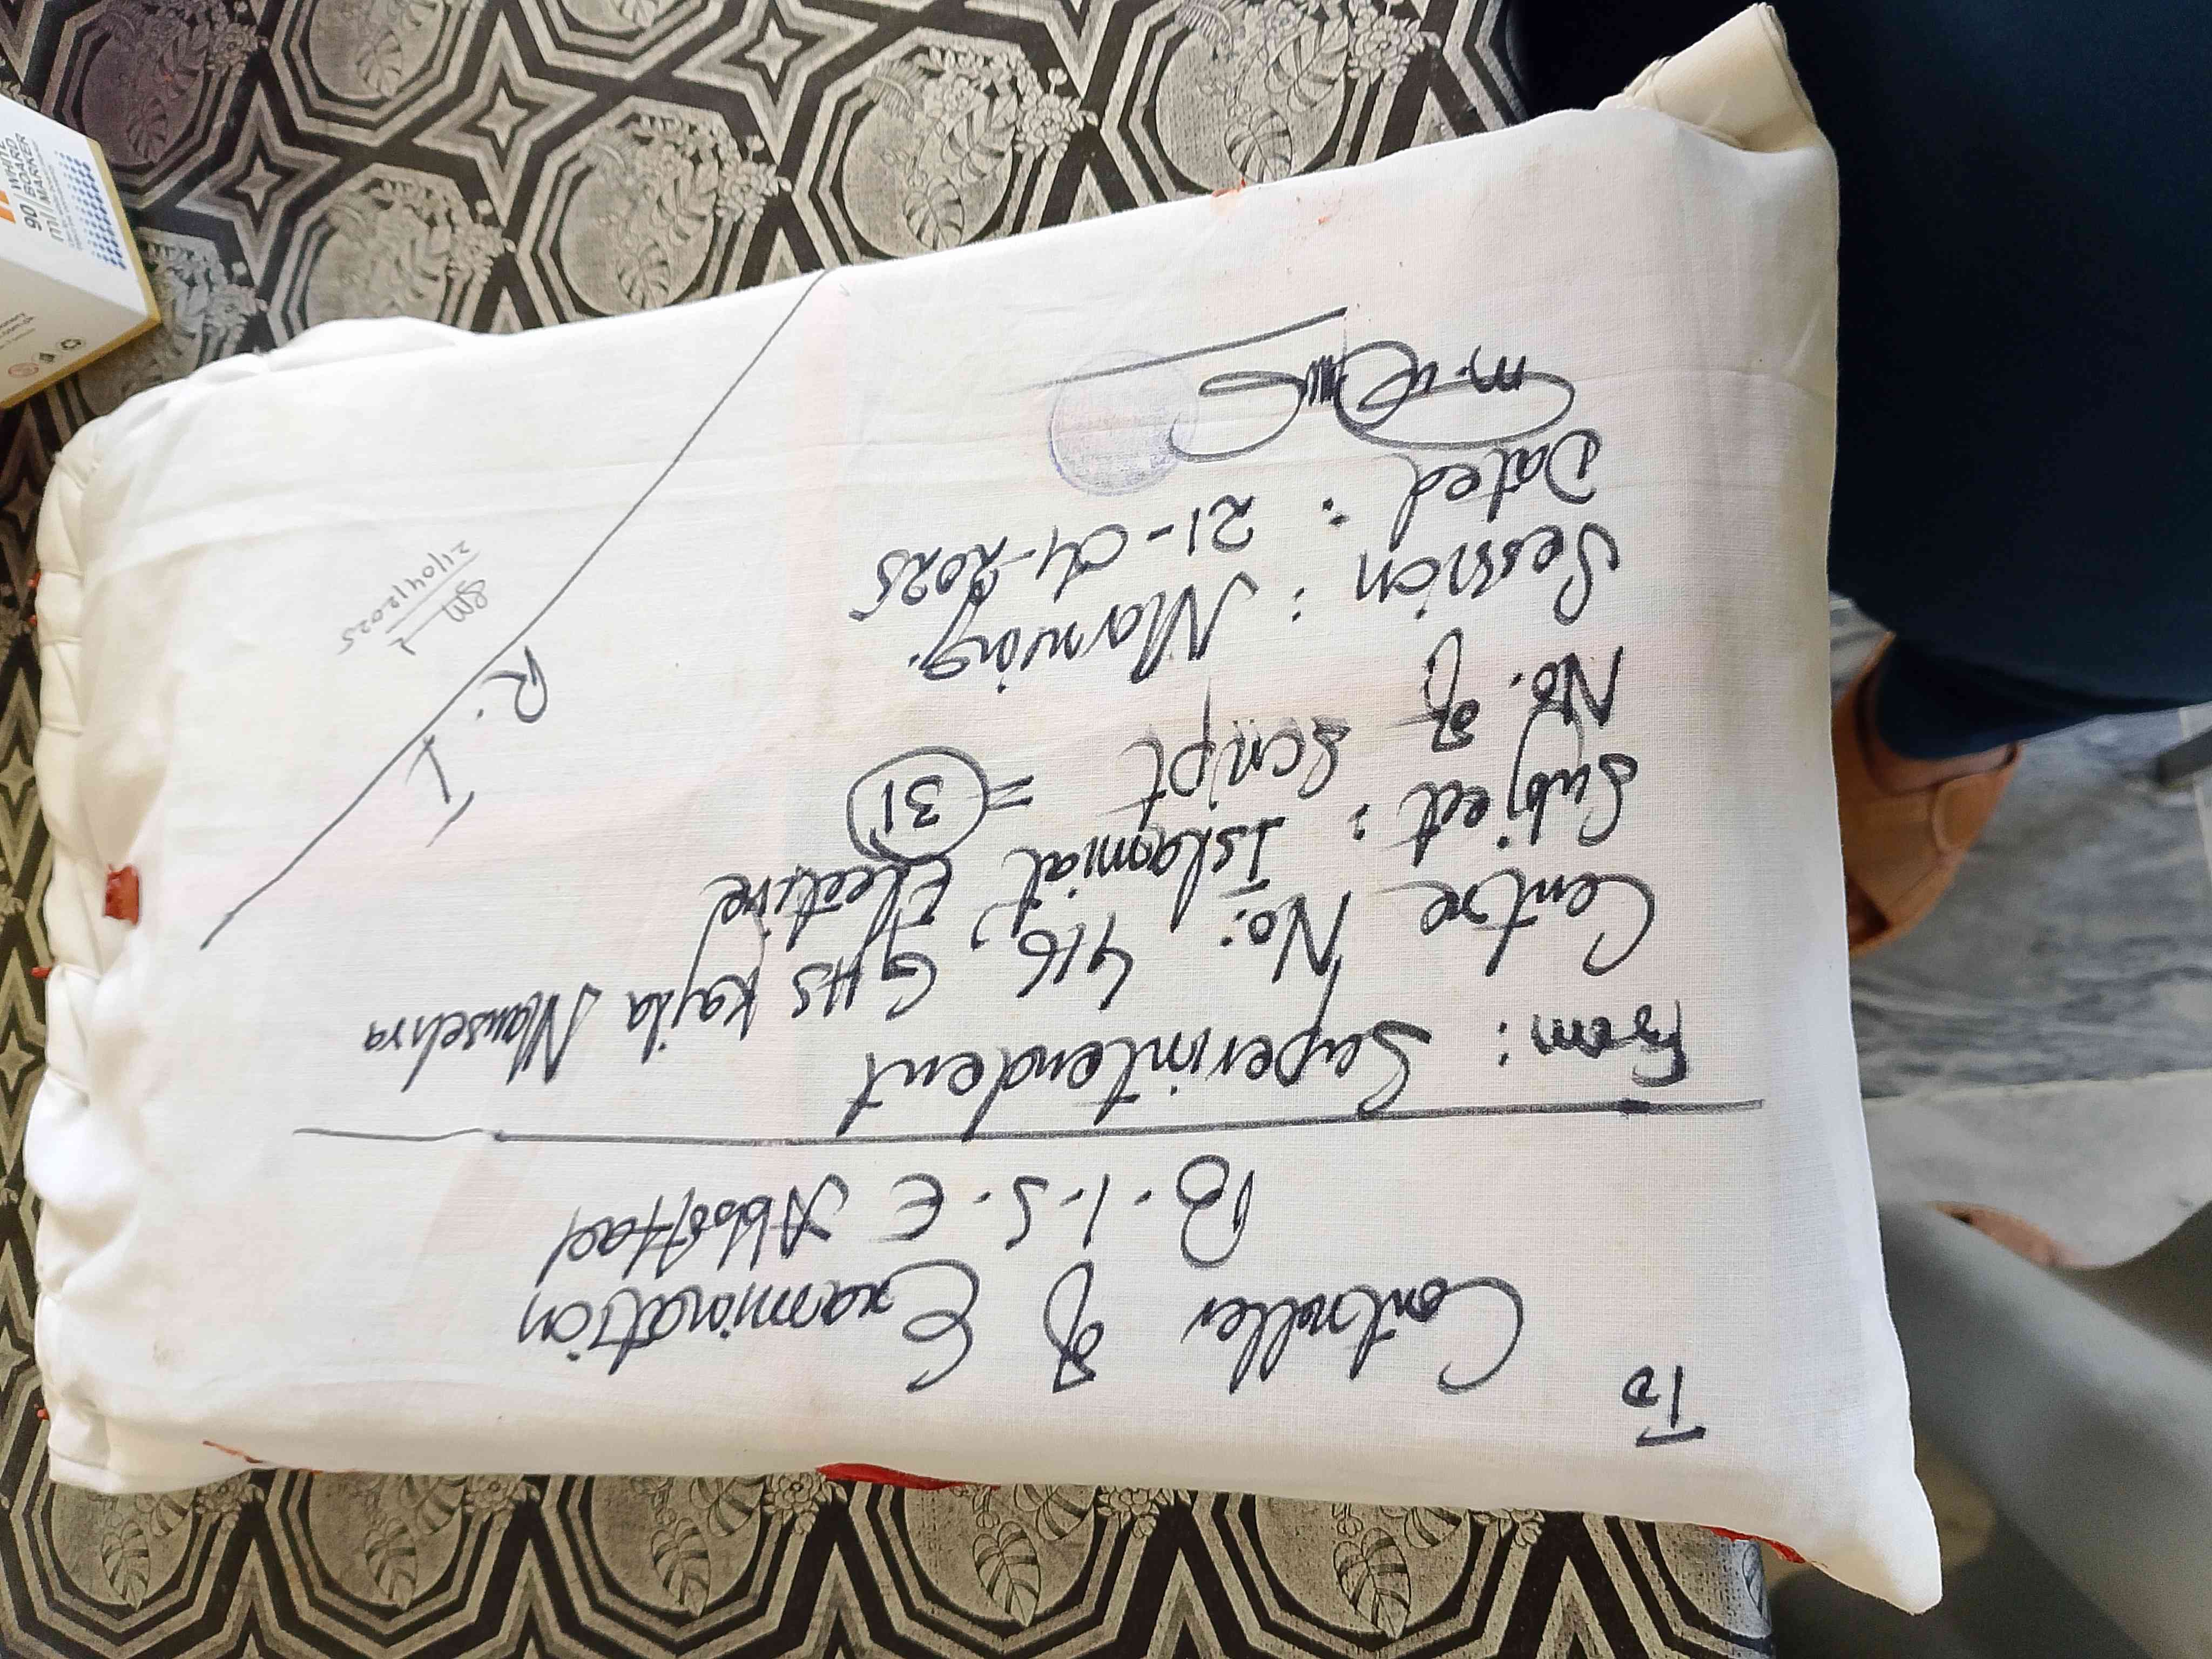 To
Controller of Examination
B.I.S.E Abbottad
From: Superintendent
Centre No: 416, GHS Kajla Mansehra
Subject: Islaamiat Elective
No. of Script = 31
Session: Morning.
Dated: 21-04-2025
R.I
21/04/2025
WHITE
BOARD
MARKER
90
ml